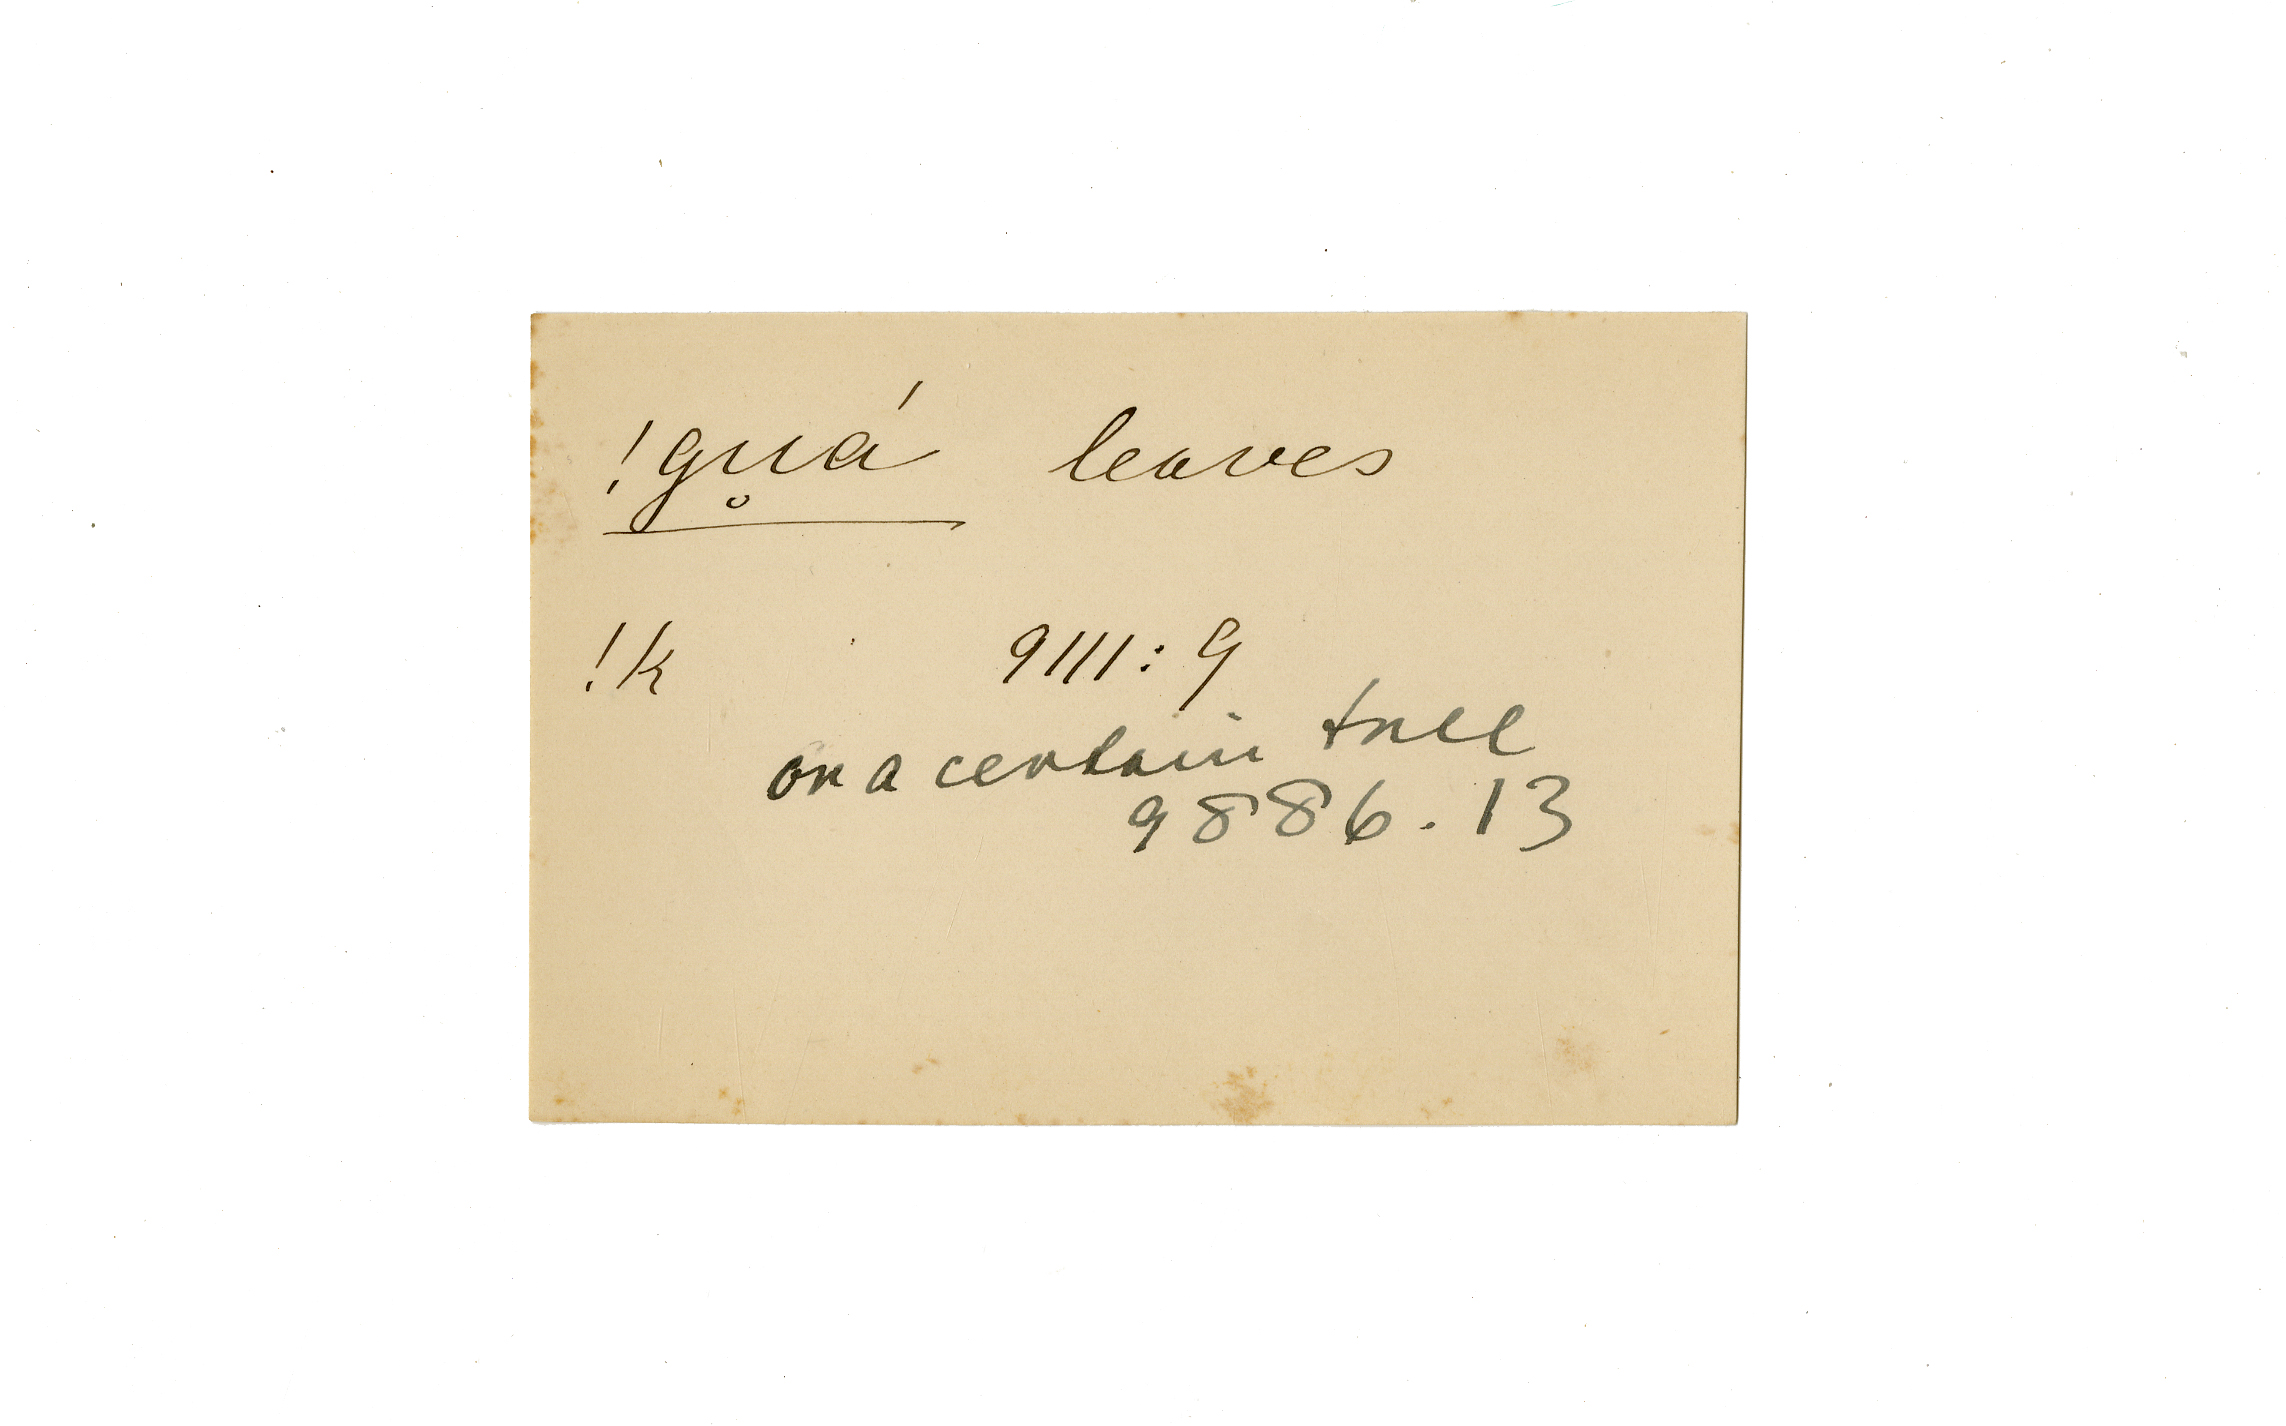 !gu̥á leaves
!k 9111:9
on a certain tree
9886.13